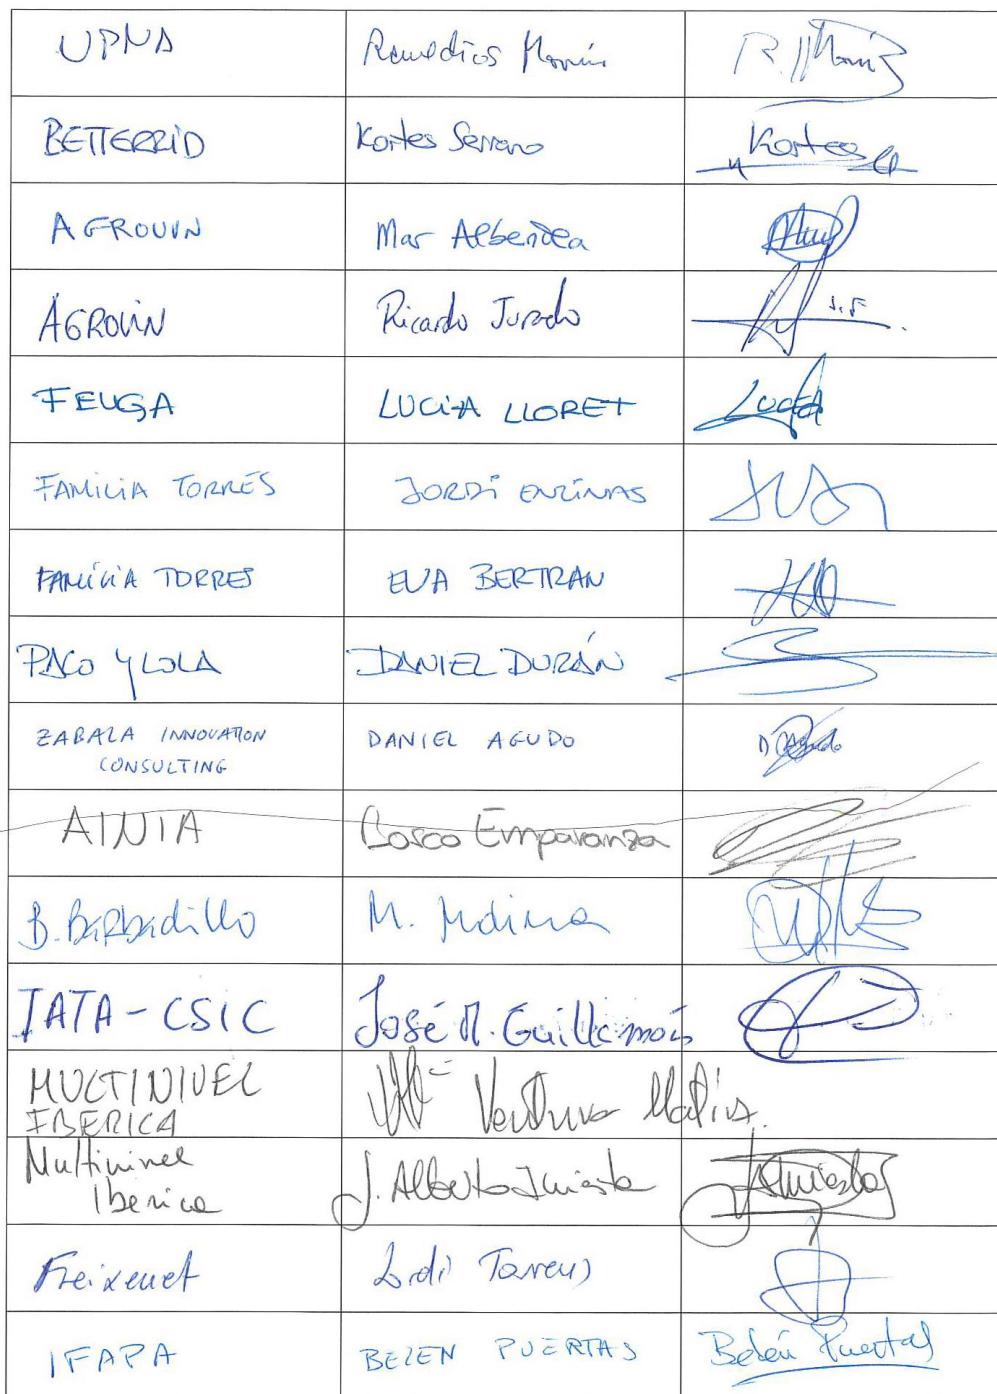 UPNA Remedios Marín
BETTERRID Kortes Serrano Kortes
AGROVIN Mar Albendea
AGROVIN Ricardo Jurado
FEUGA LUCÍA LLORET Lucía
FAMILIA TORRES JORDI ENZINAS
FAMILIA TORRES EVA BERTRAN
PACO Y LOLA DANIEL DURÁN
ZABALA INNOVATION DANIEL AGUDO D. Agudo
CONSULTING
AINIA Bosco Emparanza
B. Barbadillo M.
IATA-CSIC José M. Guillamón
MULTINIVEL
IBERICA
Multinivel J. Alberto Iniesta
Iberica
Freixenet Jordi Torrens
IFAPA BELEN PUERTAS Belén Puertas